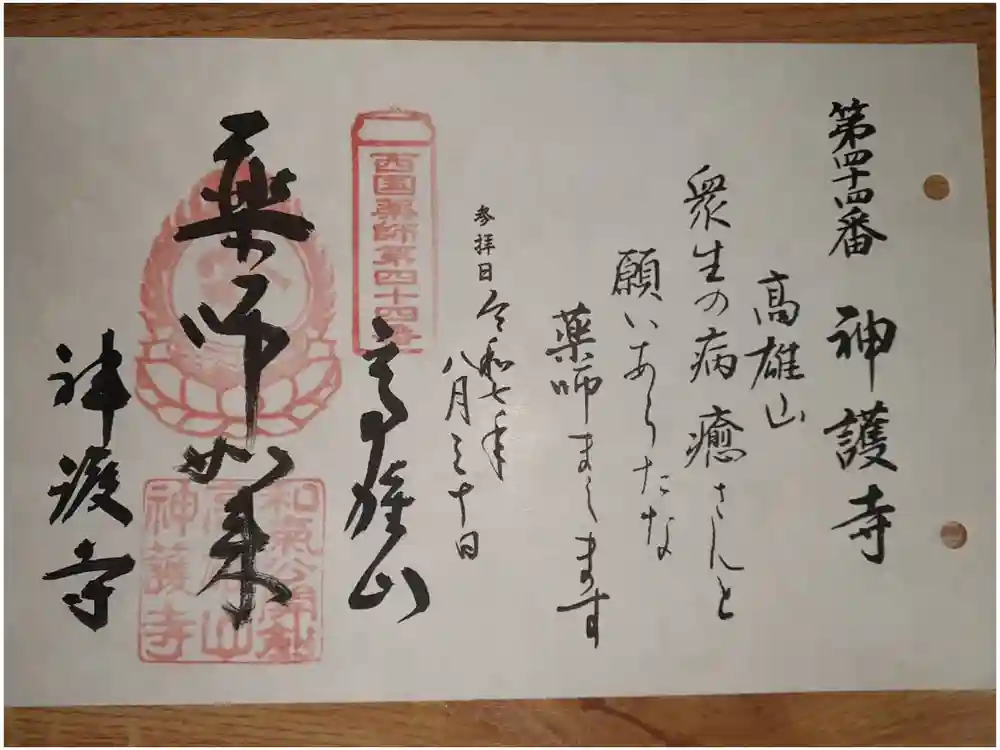 第四十四番 神護寺
高雄山
衆生の病癒さんと
願いあらたな
薬師まします
参拝日 令和七年
八月三十日
西国薬師第四十四番
高雄山
薬師如来
和氣公開創
高雄山
神護寺
神護寺